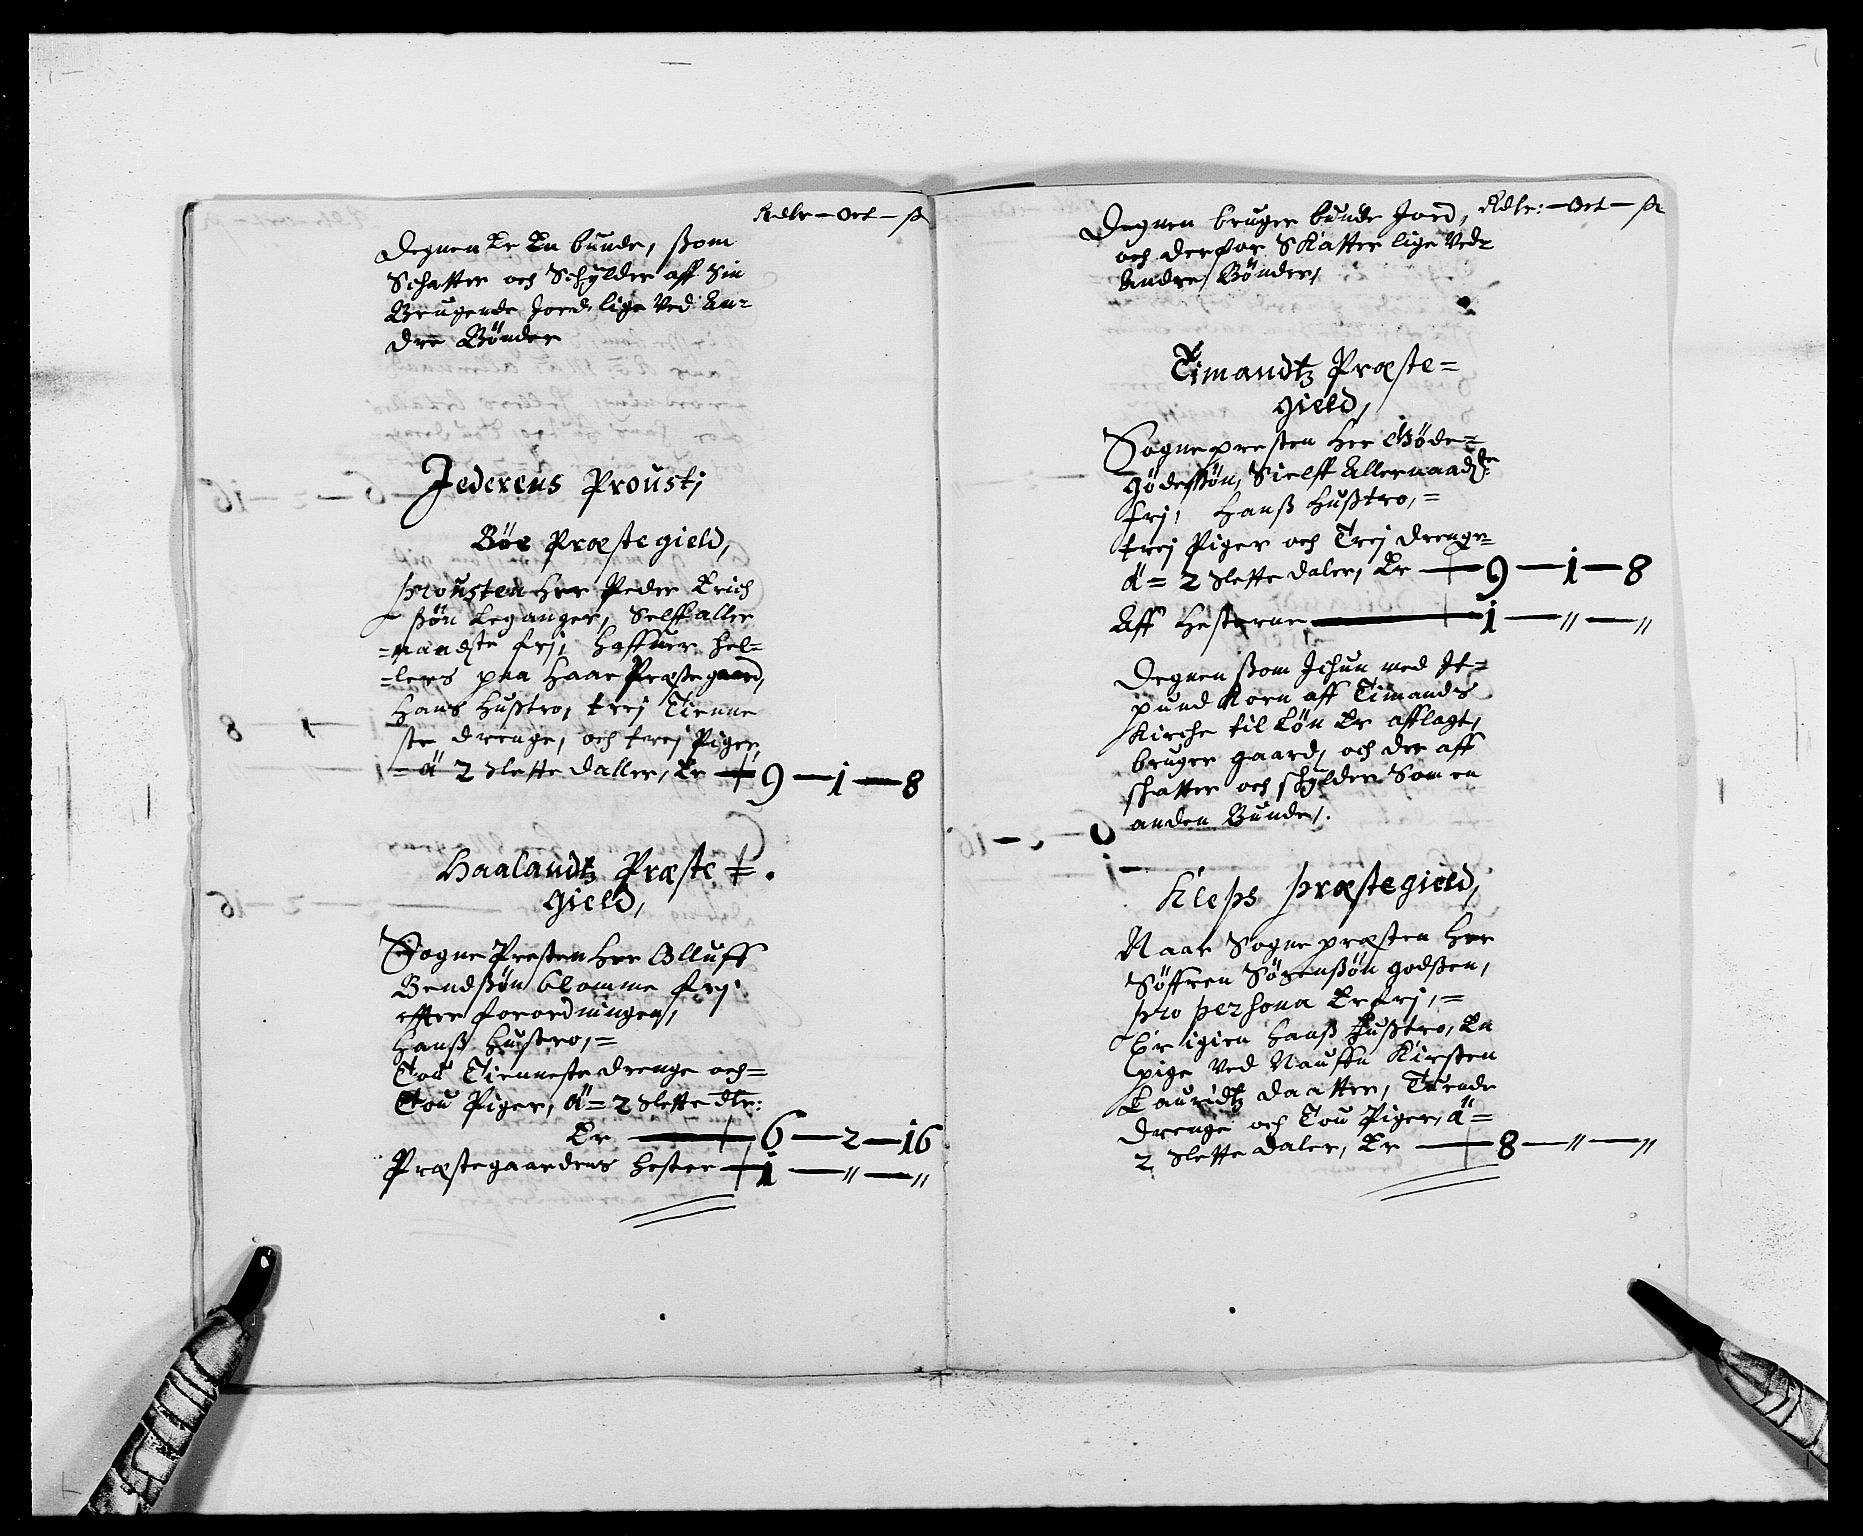 Rdlr — Ort — ß
Degnen Er En bunde, ßom
Schatter och Schylder aff Sin
Brugende Jord, lige Ved An-
dre Bönder
Jederens Proustj
Böe Præstegield,
prousten Her Peder Erich
ßön Leganger, Selff aller
=naadste frj, Haffuer hel=
=lers paa Haar Præstegaard,
Hans Hußtro, trej Tienne
ste drenge, och trej Piger,
= á 2 Slette daller, Er — 9 — 1 — 8
Haalandtz Præste =
gield,
Sogne Presten Her Olluff
Bendßön blomme frj
effter forordningen,
Hanß Hustro, =
Tou Tienneste drenge och =
Tou Piger, á = 2 Slette dlr:
Er — 6 — 2 — 16
Præstegaardens Hester — 1 — " — "
Rdlr: — Ort — ß
Degnen bruger bunde Jord,
och derfor Skatter lige Ved
Andre Bönder,
Timandtz Præste =
gield,
Sognepresten Her Göde =
Gödeßön, Sielff Allernaadste
frj, Hanß Hußtro, =
trej Piger och Trej drenge
á = 2 Slette daler, Er — 9 — 1 — 8
Aff Hesterne — 1 — " — "
Degnen ßom Ichun med It =
pund Korn aff Timands
Kirche til Lön Er afflagt,
bruger gaard, och der aff
skatter och schylder Som en
anden Bunde,.
Kleps præstegield,
Naar Sogne præsten Her
Söffren Sörenßön godßen,
pro persona Er frj, =
Er igien Hanß Hußtro, En
pige Ved Naffn Kirsten
Lauridtz daatter, Trende
drenge och Tou Piger, á =
2 Slette daler, Er — 8 — " — "